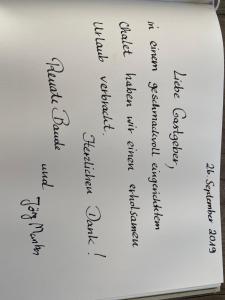 26 September 2019
Liebe Gastgeber,
in einem geschmackvoll eingerichtetem
Chalet haben wir einen erholsamen
Urlaub verbracht.
Herzlichen Dank!
Renate Baude und Jörg